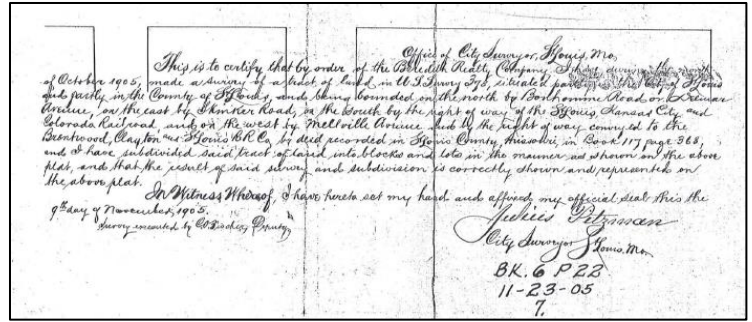 Office of City Surveyor, St Louis, Mo.
This is to certify that by order of the Realty Company, I have during the month
of October 1905, made a survey of a tract of land in U.S. Survey 378, situated partly in the City of St Louis
and partly in the County of St Louis, and being bounded on the north by Bonhomme Road or Delmar
Avenue, on the east by Skinker Road, on the South by the right of way of the St Louis, Kansas City and
Colorado Railroad, and on the west by Melville Avenue and by the right of way conveyed to the
Brentwood, Clayton and St Louis RR Co. by deed recorded in St Louis County, Missouri, in Book 117 page 368,
and I have subdivided said tract of land into blocks and lots in the manner as shown on the above
plat, and that the result of said survey and subdivision is correctly shown and represented on
the above plat.
In Witness Whereof, I have hereto set my hand and affixed my official seal this the
9th day of November, 1905.
Survey executed by Deputy
Julius Pitzman
City Surveyor St Louis, Mo.
BK. 6 P 22
11-23-05
7.